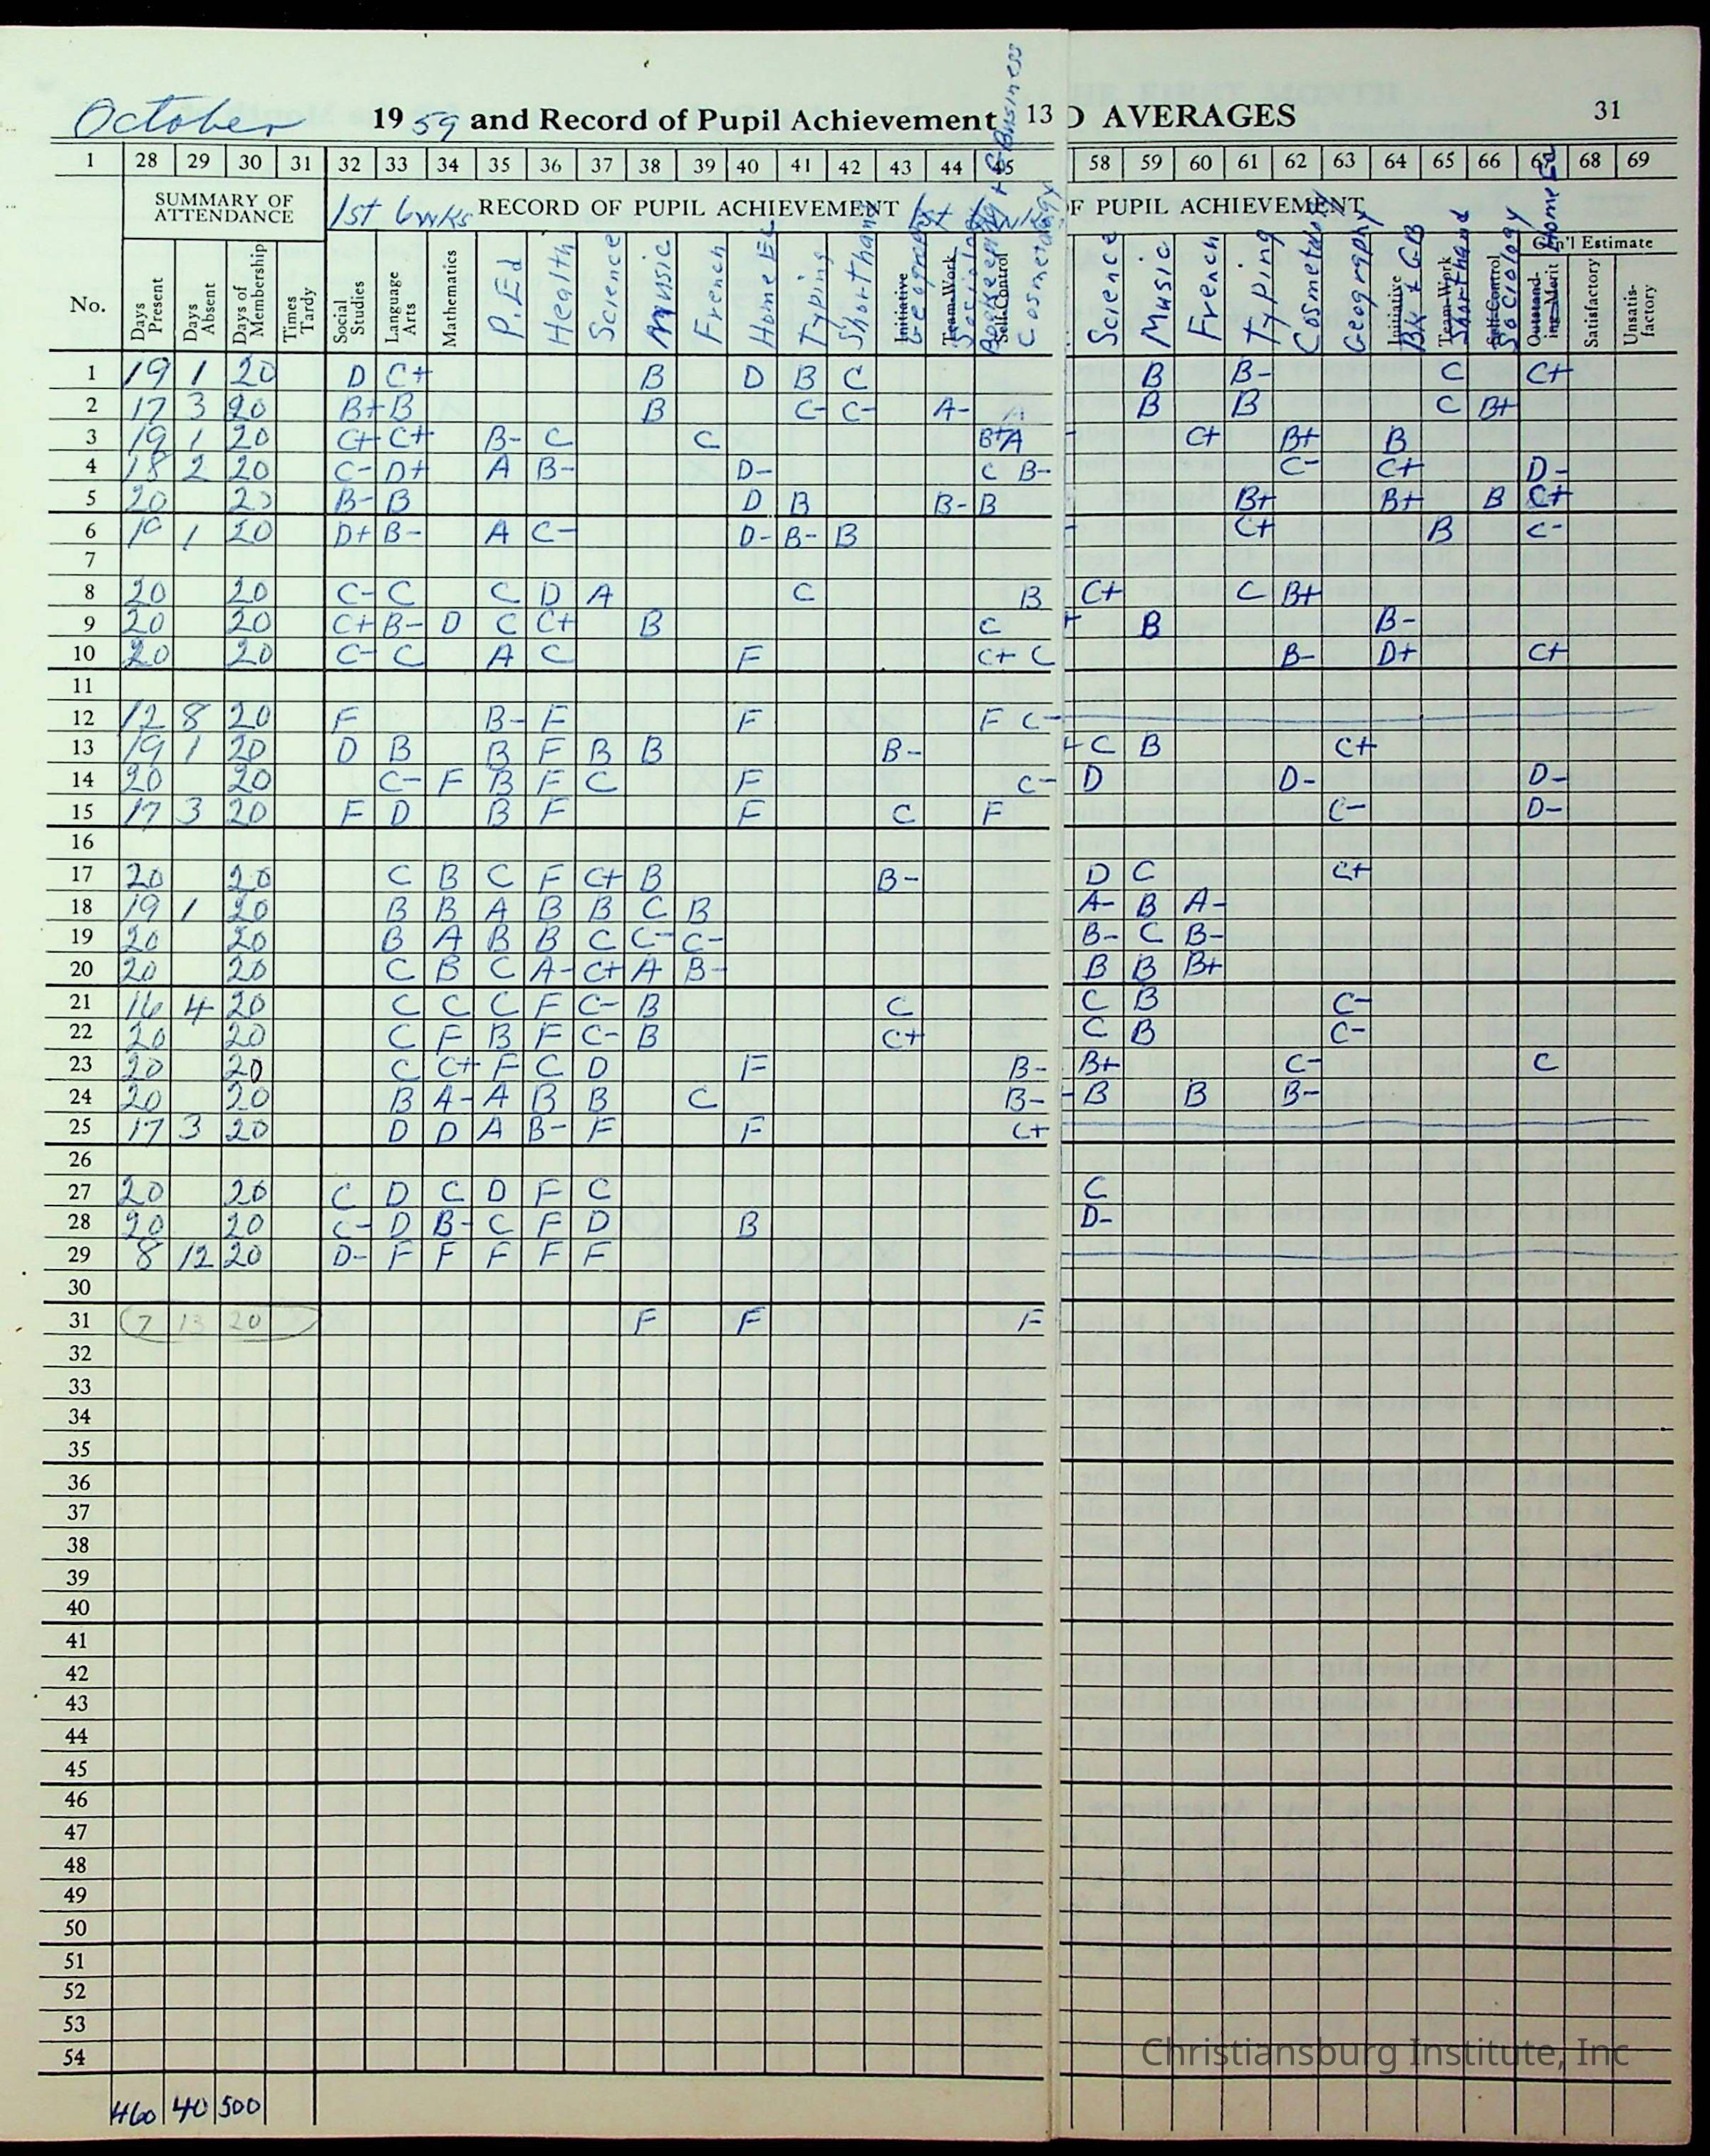 October 19 59 and Record of Pupil Achievement 13 D AVERAGES 31
1 28 29 30 31 32 33 34 35 36 37 38 39 40 41 42 43 44 45 58 59 60 61 62 63 64 65 66 67 68 69
SUMMARY OF ATTENDANCE 1st 6 wks RECORD OF PUPIL ACHIEVEMENT 1st OF PUPIL ACHIEVEMENT
Gen'l Estimate
No. Days Present Days Absent Days of Membership Times Tardy Social Studies Language Arts Mathematics P.Ed Health Science Music French Home Ec Typing Shorthand Initiative Geography Team-Work Sociology Self-Control Bookeeping + G Business Cosmetology Science Music French Typing Cosmetology Geography Initiative BK + GB Team-Work Shorthand Self-Control Sociology Outstanding Merit Home Ed Satisfactory Unsatisfactory
1 19 1 20 D C+ B D B C B B- C C+
2 17 3 20 B+ B B C- C- A- A B B C B+
3 19 1 20 C+ C+ B- C C B+ A C+ B+ B
4 18 2 20 C- D+ A B- D- C B- C- C+ D-
5 20 20 B- B D B B- B B+ B+ B C+
6 19 1 20 D+ B- A C- D- B- B C+ B C-
7
8 20 20 C- C C D A C B C+ C B+
9 20 20 C+ B- D C C+ B C B B-
10 20 20 C- C A C F C+ C B- D+ C+
11
12 12 8 20 F B- F F F C-
13 19 1 20 D B B F B B B- C B C+
14 20 20 C- F B F C F C- D D- D-
15 17 3 20 F D B F F C F C- D-
16
17 20 20 C B C F C+ B B- D C C+
18 19 1 20 B B A B B C B A- B A-
19 20 20 B A B B C C- C- B- C B-
20 20 20 C B C A- C+ A B- B B B+
21 16 4 20 C C C F C- B C C B C-
22 20 20 C F B F C- B C+ C B C-
23 20 20 C C+ F C D F B- B+ C- C
24 20 20 B A- A B B C B- B B B-
25 17 3 20 D D A B- F F C+
26
27 20 20 C D C D F C C
28 20 20 C- D B- C F D B D-
29 8 12 20 D- F F F F F
30
31 7 13 20 F F F
32
33
34
35
36
37
38
39
40
41
42
43
44
45
46
47
48
49
50
51
52
53
54
460 40 500
Christiansburg Institute, Inc